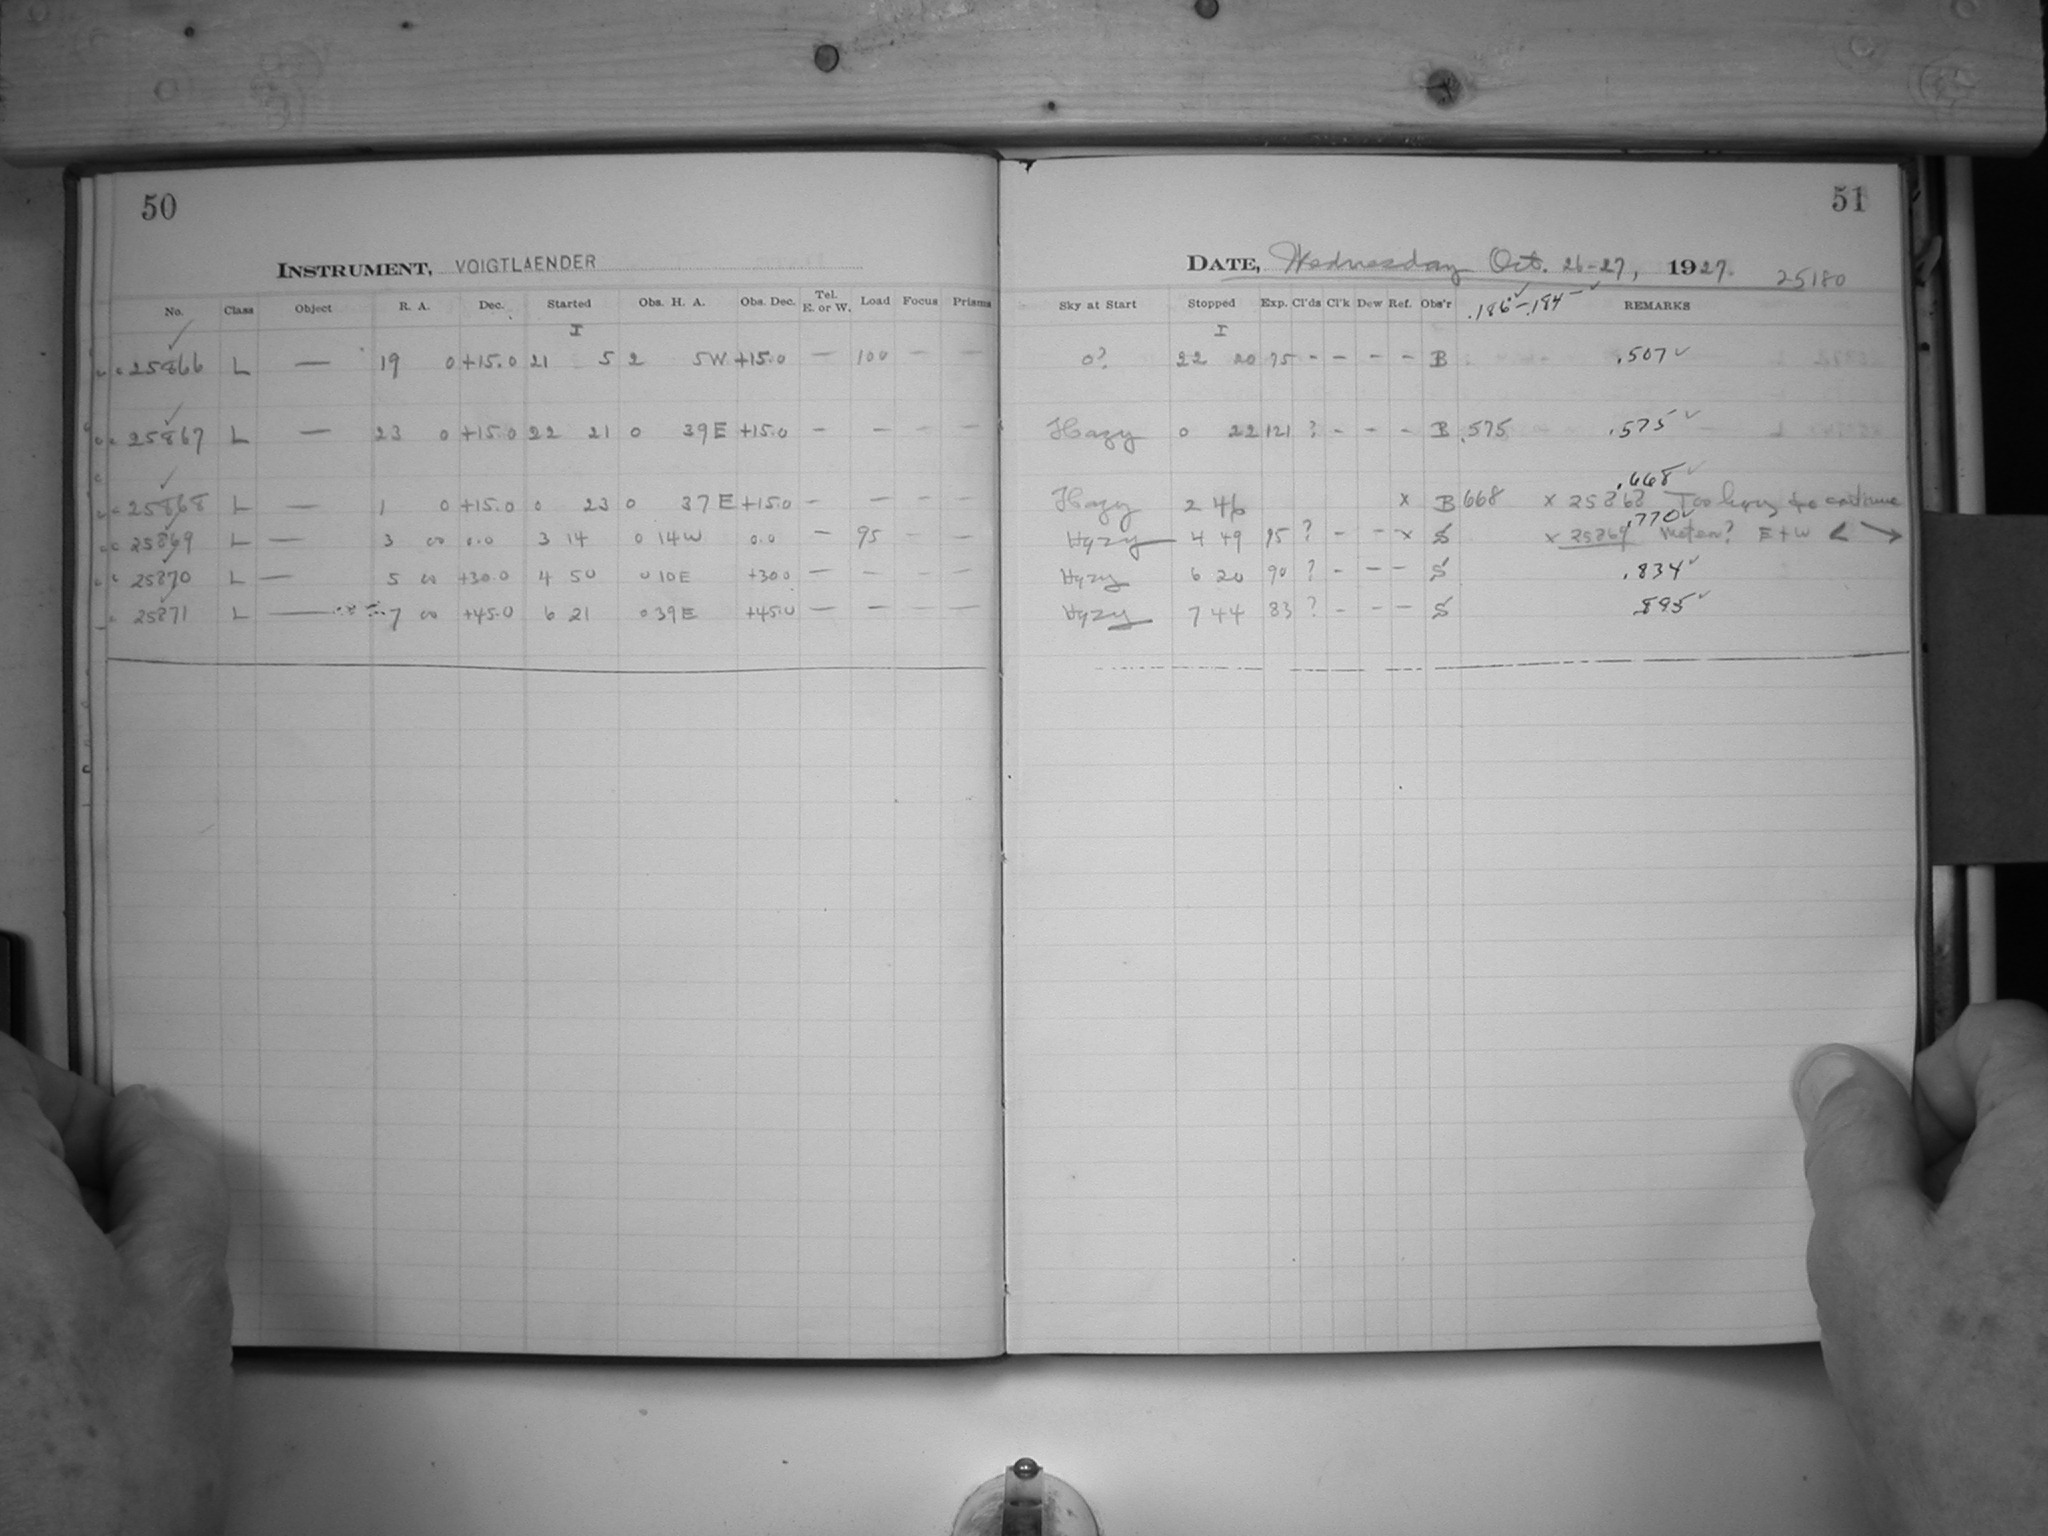 50
INSTRUMENT, VOIGTLAENDER
No. Class Object R. A. Dec. Started Obs. H. A. Obs. Dec. Tel. E. or W. Load Focus Prisms
I
25866 L — 19 0 +15.0 21 5 2 5W +15.0 — 100 — —
25867 L — 23 0 +15.0 22 21 0 39E +15.0 — — — —
25868 L — 1 0 +15.0 0 23 0 37E +15.0 — — — —
25869 L — 3 00 0.0 3 14 0 14W 0.0 — 95 — —
25870 L — 5 00 +30.0 4 50 0 10E +30.0 — — — —
25871 L — 7 00 +45.0 6 21 0 39E +45.0 — — — —
51
DATE, Wednesday Oct. 26-27, 1927. 25180
Sky at Start Stopped Exp. Cl'ds Cl'k Dew Ref. Obs'r .186 - .184 REMARKS
I
0? 22 20 75 - - - - B .507 ✓
Hazy 0 22 121 ? - - - B .575 .575 ✓
.668 ✓
Hazy 2 46 x B 668 x 25868 Too hazy to continue
.770 ✓
Hazy 4 49 95 ? - - x S x 25869 Meteor? E+W
Hazy 6 20 90 ? - - - S .834 ✓
Hazy 7 44 83 ? - - - S .895 ✓